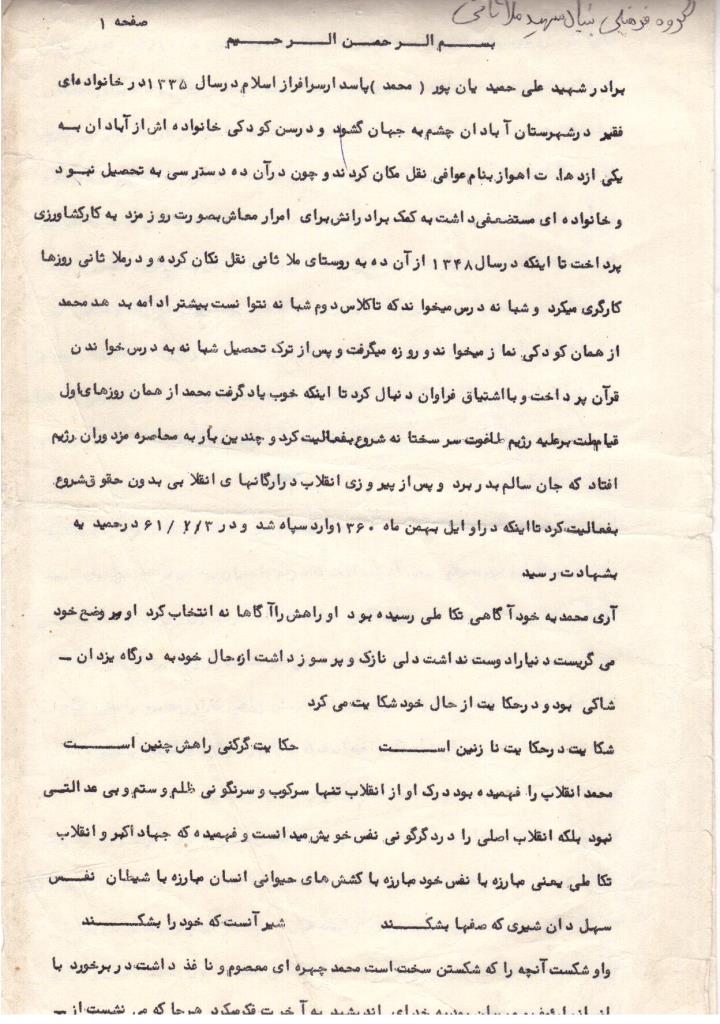 گروه فرهنگی بنیاد شهید ملاثانی
صفحه ۱
بسم الرحمن الرحیم
برادر شهید علی حمید یان پور ( محمد )پاسدار سرافراز اسلام درسال ۱۳۳۵در خانواده‌ای
فقیر درشهرستان آبادان چشم به جهان گشود و درسن کودکی خانواده اش از آبادان به
یکی ازدهات اهواز بنام عوافی نقل مکان کردند و چون درآن ده دسترسی به تحصیل نبود
و خانواده ای مستضعفی داشت به کمک برادرانش برای امرار معاش بصورت روز مزد به کارکشاورزی
پرداخت تا اینکه درسال ۱۳۴۸ از آن ده به روستای ملا ثانی نقل نکان کرده و درملا ثانی روزها
کارگری میکرد و شبانه درس میخواند که تاکلاس دوم شبانه نتوانست بیشتر ادامه بدهد محمد
از همان کودکی نماز میخواند و روزه میگرفت و پس از ترک تحصیل شبانه به درس خواندن
قرآن پرداخت و با اشتیاق فراوان دنبال کرد تا اینکه خوب یاد گرفت محمد از همان روزهای اول
قیام ملت برعلیه رژیم طاغوت سرسختانه شروع بفعالیت کرد و چندین بار به محاصره مزدوران رژیم
افتاد که جان سالم بدر برد و پس از پیروزی انقلاب درارگانهای انقلابی بدون حقوق شروع
بفعالیت کرد تا اینکه دراوایل بهمن ماه ۱۳۶۰ وارد سپاه شد و در ۶۱/۲/۳ درحمیدیه
بشهادت رسید
آری محمد به خودآگاهی تکاملی رسیده بود او راهش راآگاهانه انتخاب کرد او بر وضع خود
می گریست دنیاراد وست نداشت دلی نازک و پرسوز داشت از حال خود به درگاه یزدان ــ
شاکی بود و درحکایت از حال خود شکایت می کرد
شکایت درحکایت نازنین است حکایت گرکنی راهش چنین است
محمد انقلاب را فهمیده بود درک او از انقلاب تنها سرکوب و سرنگونی ظلم و ستم و بی عدالتی
نبود بلکه انقلاب اصلی را دردگرگونی نفس خویش میدانست و فهمیده که جهاد اکبر و انقلاب
تکاملی یعنی مبارزه با نفس خود مبارزه با کشش های حیوانی انسان مبارزه با شیطان نفس
سهل دان شیری که صفها بشکند شیر آنست که خود را بشکند
واو شکست آنچه را که شکستن سخت است محمد چهره ای معصوم و نافذ داشت در برخورد با
به خدای اندیشید به آخرت فکر میکرد هرجا که می نشست از ــ